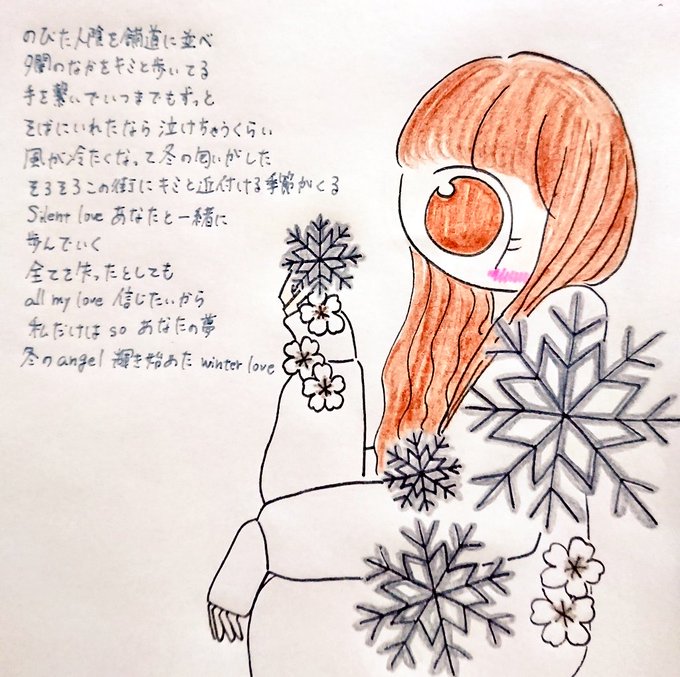 のびた人陰を舗道に並べ
夕闇のなかをキミと歩いてる
手を繋いでいつまでもずっと
そばにいれたなら泣けちゃうくらい
風が冷たくなって冬の匂いがした
そろそろこの街にキミと近付ける季節がくる
Silent love あなたと一緒に
歩んでいく
全てを失ったとしても
all my love 信じたいから
私だけは so あなたの夢
冬のangel 輝き始めた winter love